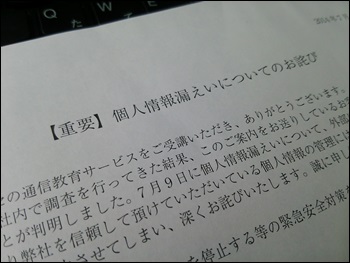 Q W
【重要】 個人情報漏えいについてのお詫び
の通信教育サービスをご受講いただき、ありがとうございます。
社内で調査を行ってきた結果、このご案内をお送りしているお
とが判明しました。7月9日に個人情報漏えいについて、外部
り弊社を信頼して預けていただいている個人情報の管理には
させてしまい、深くお詫びいたします。誠に申し
を停止する等の緊急安全対策